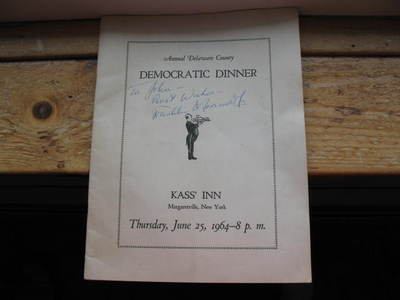 Annual Delaware County
DEMOCRATIC DINNER
To John —
Best Wishes —
Franklin D Roosevelt Jr
KASS' INN
Margaretville, New York
Thursday, June 25, 1964—8 p. m.